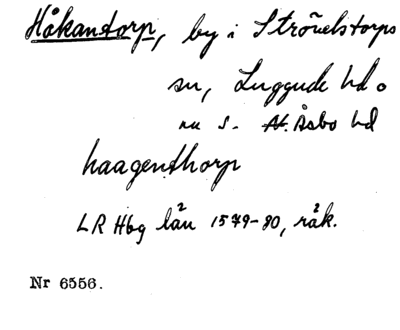 Håkantorp, by i Strövelstorps
sn, Luggude hd o
nu S. Åsbo hd
haagenthorp
LR Hbg län 1579-80, räk.
Nr 6556.